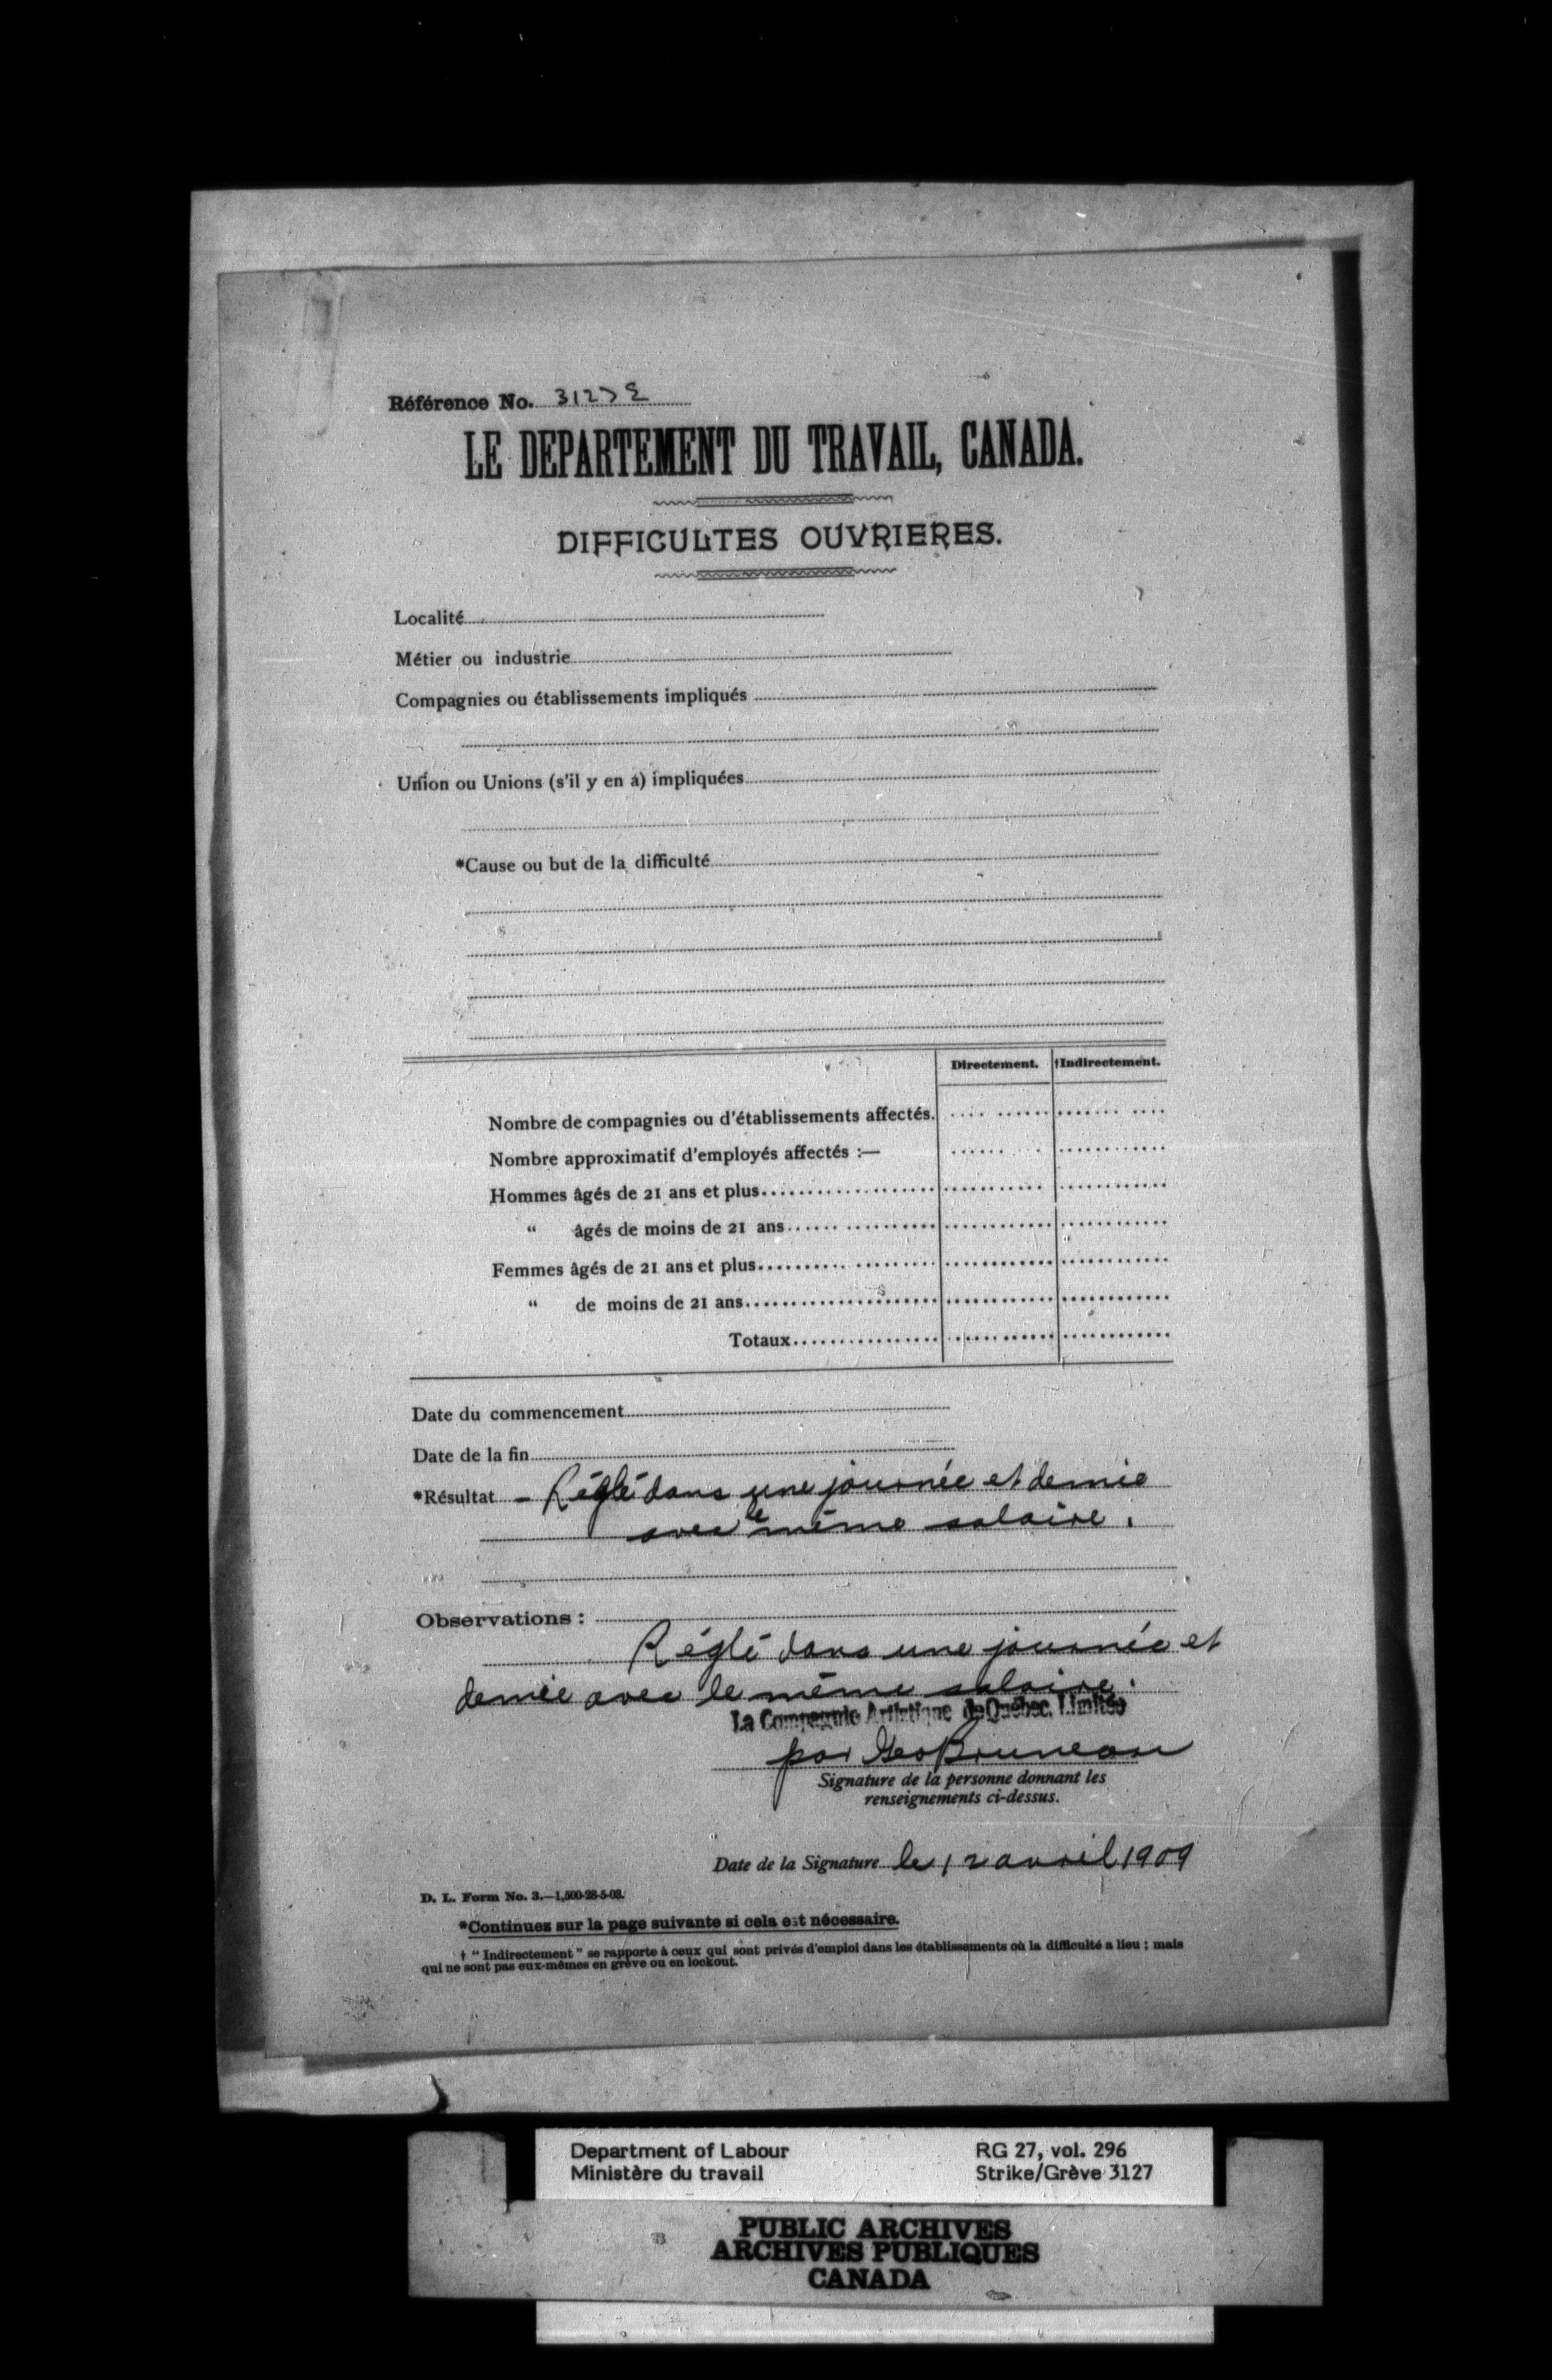 Référence No. 3127 E
LE DEPARTEMENT DU TRAVAIL, CANADA.
DIFFICULTES OUVRIERES.
Localité
Métier ou industrie
Compagnies ou établissements impliqués
Union ou Unions (s'il y en a) impliquées
*Cause ou but de la difficulté
Directement. †Indirectement.
Nombre de compagnies ou d'établissements affectés.
Nombre approximatif d'employés affectés :—
Hommes âgés de 21 ans et plus
“ âgés de moins de 21 ans
Femmes âgés de 21 ans et plus
“ de moins de 21 ans
Totaux
Date du commencement
Date de la fin
*Résultat – Réglé dans une journée et demie
avec le même salaire.
Observations :
Réglé dans une journée et
demie avec le même salaire.
La Compagnie Artistique de Québec, Limitée
par Geo Bruneau
Signature de la personne donnant les
renseignements ci-dessus.
Date de la Signature le 12 avril 1909
D. L. Form No. 3.—1,500-28-5-08.
*Continuez sur la page suivante si cela est nécessaire.
† “ Indirectement ” se rapporte à ceux qui sont privés d'emploi dans les établissements où la difficulté a lieu ; mais
qui ne sont pas eux-mêmes en grève ou en lockout.
Department of Labour RG 27, vol. 296
Ministère du travail Strike/Grève 3127
PUBLIC ARCHIVES
ARCHIVES PUBLIQUES
CANADA